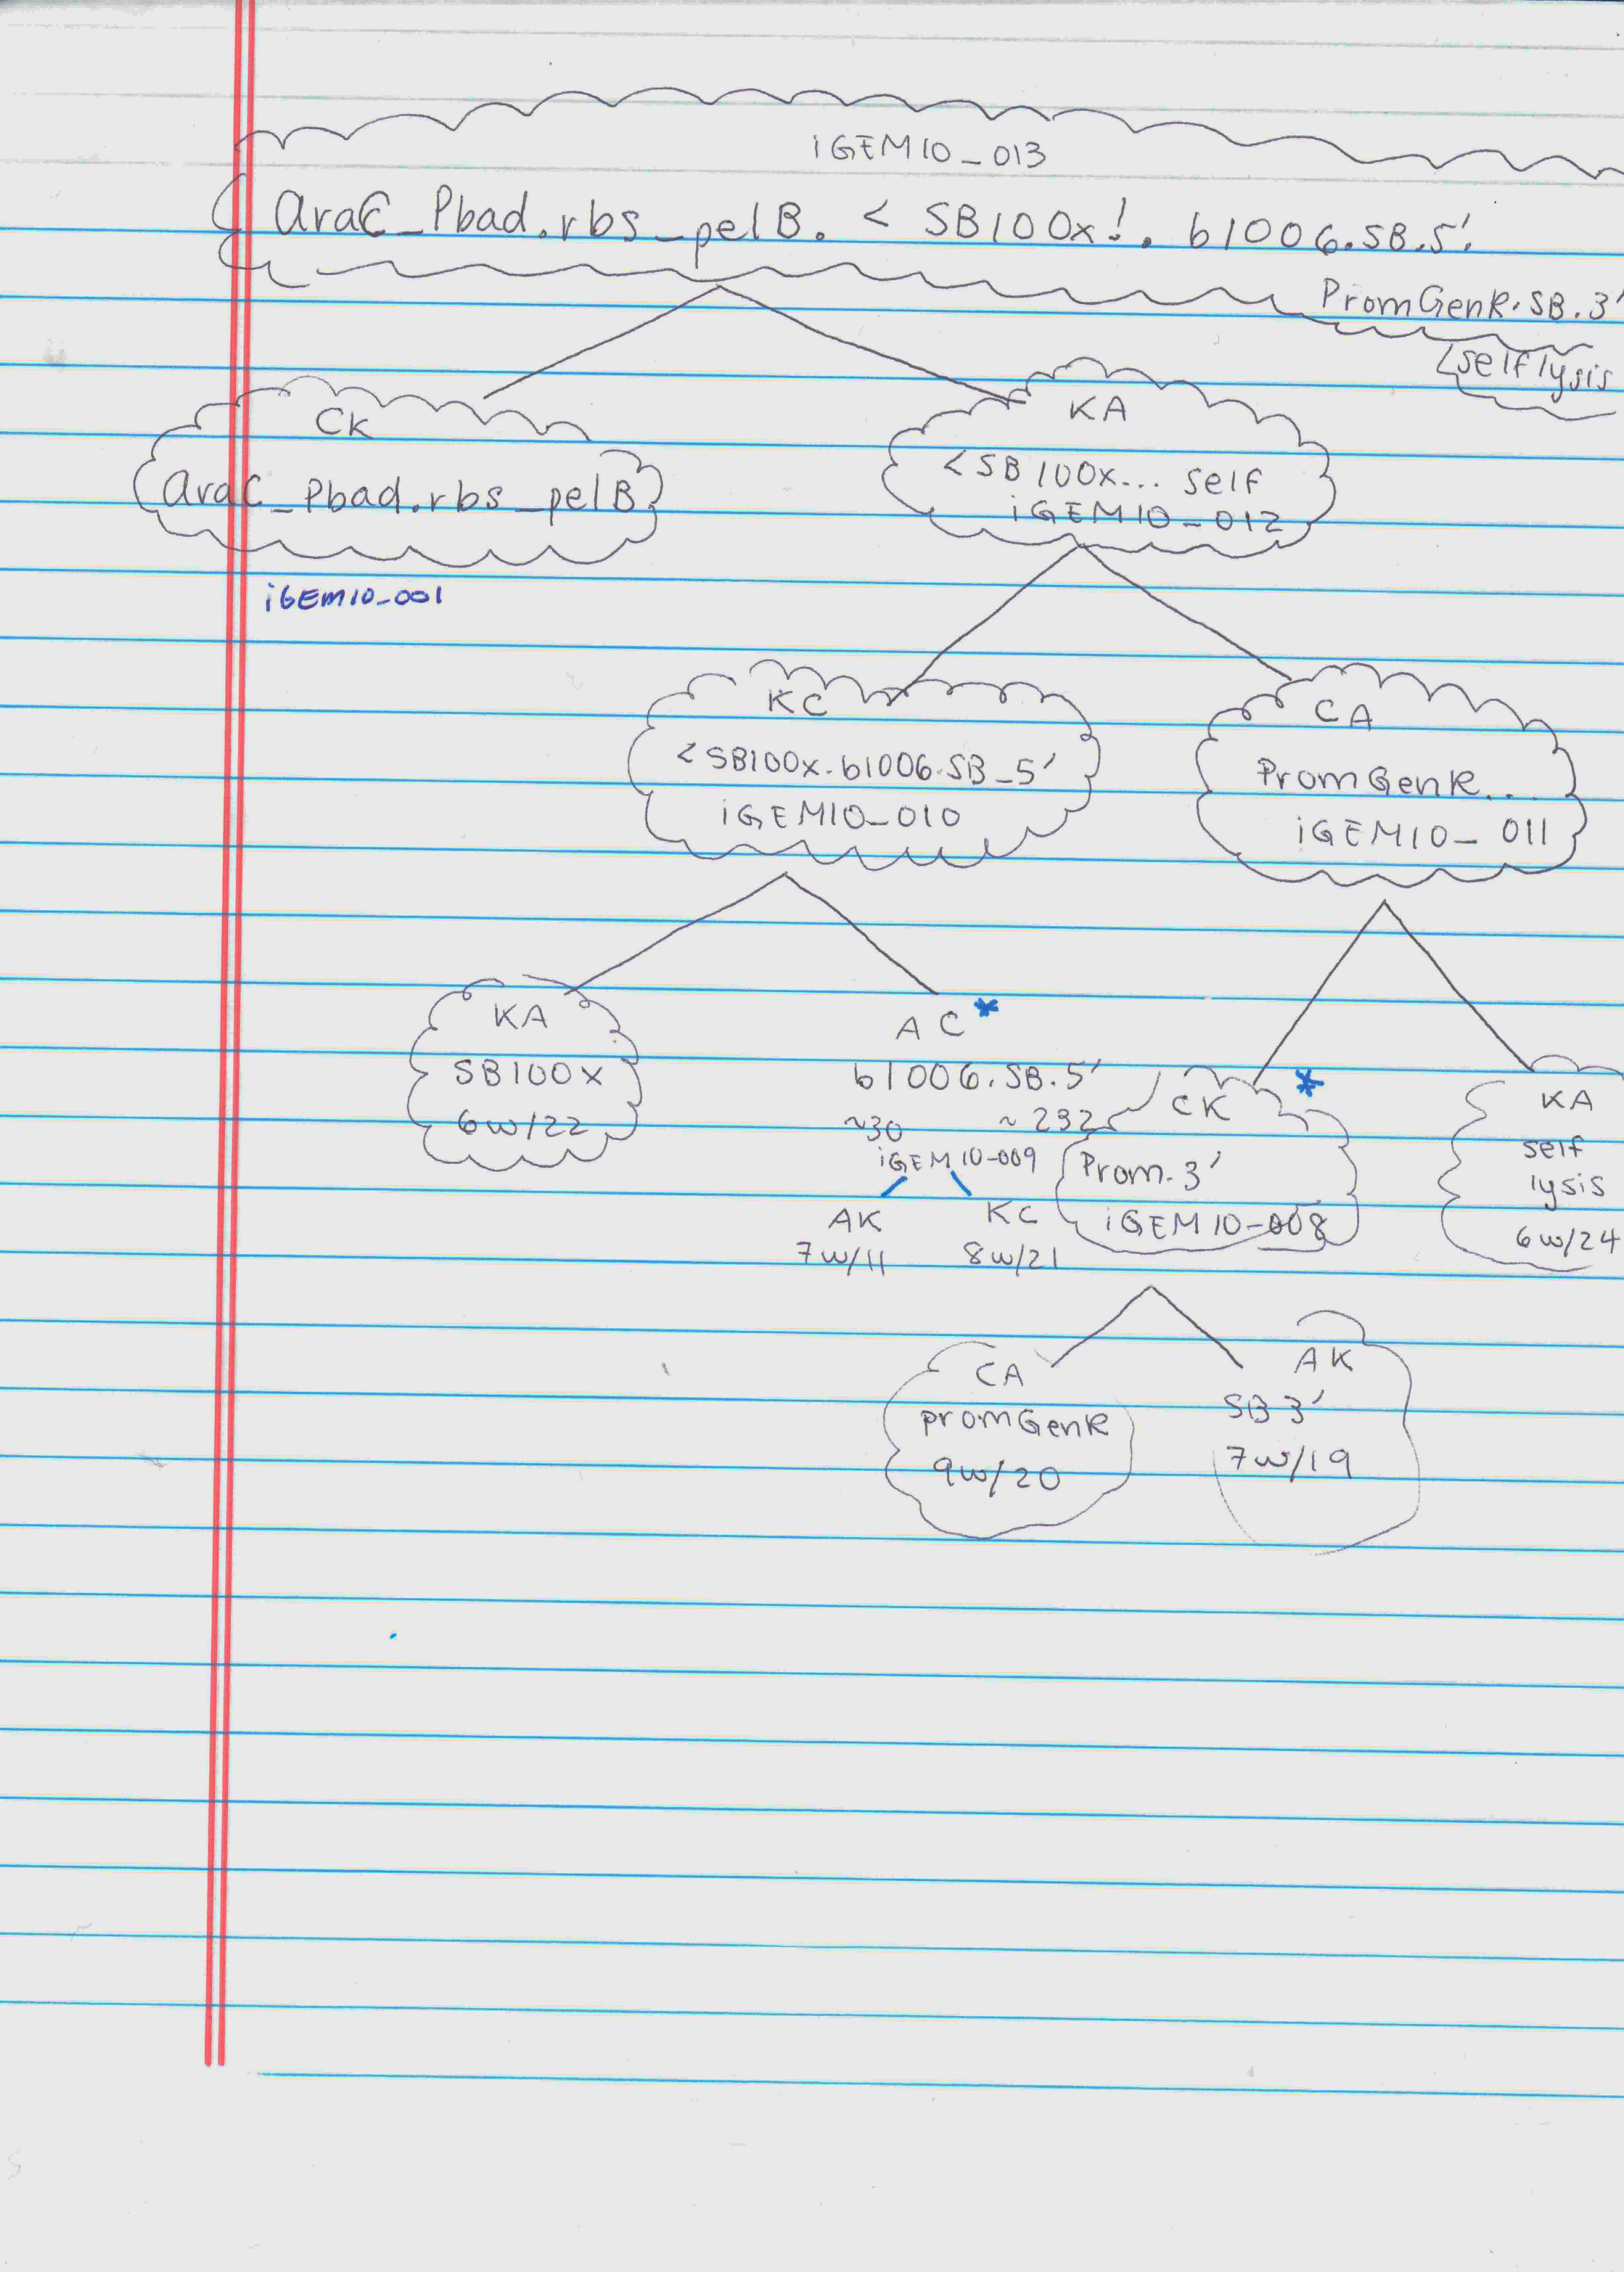 iGEM10_013
araC_Pbad.rbs_pelB. < SB100x!. b1006.SB.5'.
PromGenR.SB.3'
<selflysis
CK
araC_Pbad.rbs_pelB
iGEM10_001
KA
<SB100x... self
iGEM10_012
KC
<SB100x.b1006.SB_5'
iGEM10_010
CA
PromGenR...
iGEM10_011
KA
SB100x
6w/22
AC*
b1006.SB.5'
~30 ~232
iGEM10-009
AK KC
7w/11 8w/21
CK *
Prom.3'
iGEM10-008
KA
self
lysis
6w/24
CA
promGenR
9w/20
AK
SB3'
7w/19